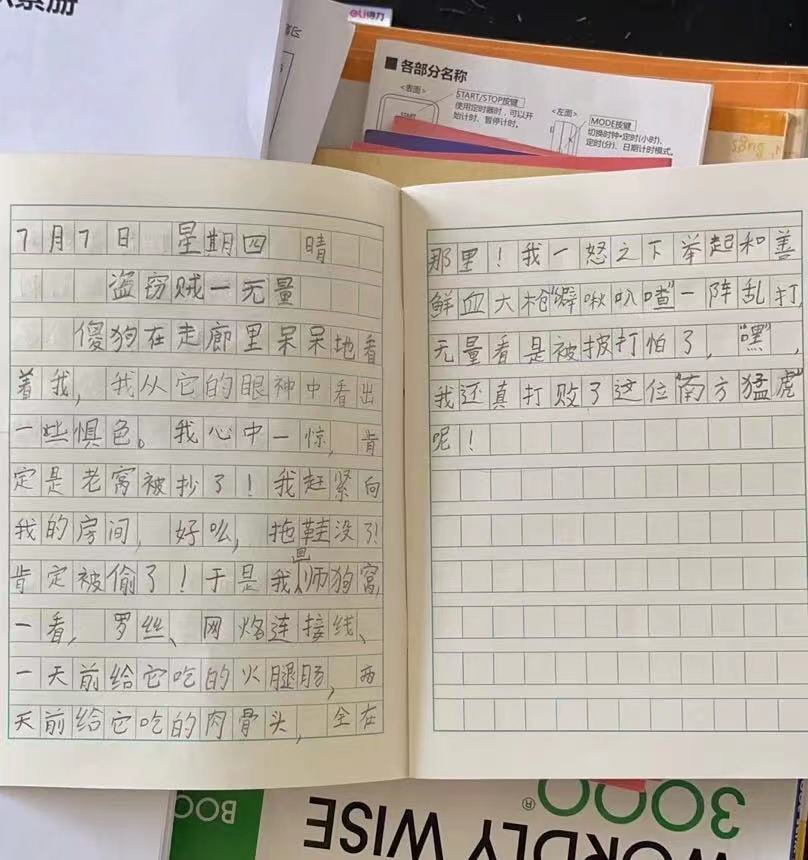 eli得力
■ 各部分名称
<表面>
START/STOP按键
使用定时器时，可以开
始计时、暂停计时。
START
<左面>
MODE按键
切换时钟•定时(小时)、
定时(分)、日期计时模式。
7月7日 星期四 晴
盗窃贼一无量
傻狗在走廊里呆呆地看
着我，我从它的眼神中看出
一些惧色。我心中一惊，肯
定是老窝被抄了！我赶紧向
我的房间，好吆，拖鞋没了！
画
肯定被偷了！于是我师狗窝，
一看，罗丝、网烙连接线、
一天前给它吃的火腿肠，两
天前给它吃的肉骨头，全在
那里！我一怒之下举起和善
鲜血大枪“噼啾叭喳”一阵乱打，
无量看是被披打怕了，“嘿”，
我还真打败了这位“南方猛虎”
呢！
BOO
WORDLY WISE
3000®